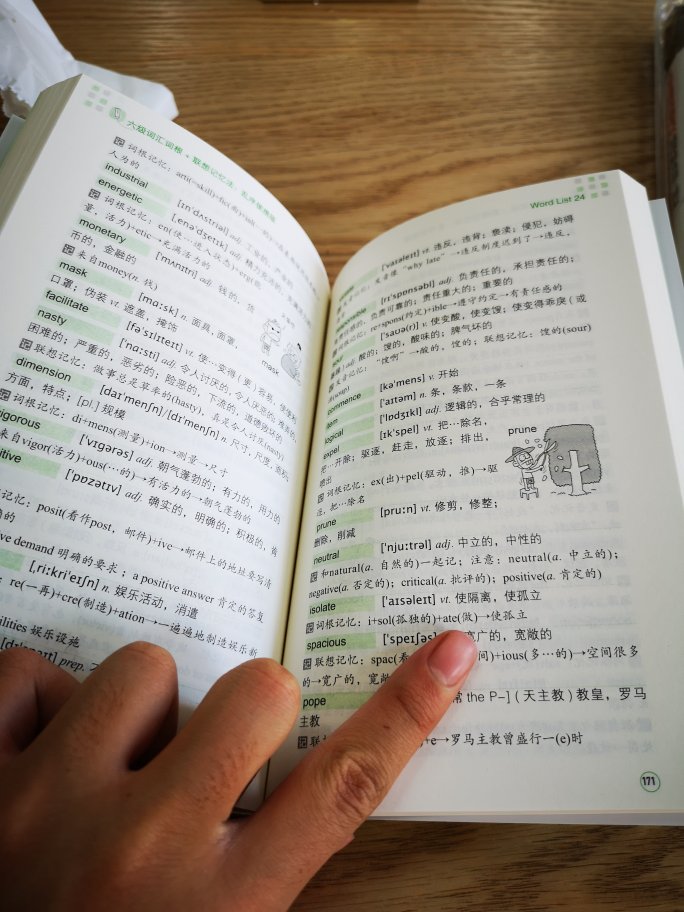 六级词汇词根+联想记忆法：乱序便携版
词根记忆：arti(=skill)+fic(做)+ial(…的)
人为的
industrial [ɪnˈdʌstriəl] adj. 工业的，产业的
energetic [ˌenəˈdʒetɪk] adj. 精力充沛的，
词根记忆：en(使…进入状态)+erg(能
量，活力)+etic→充满活力的
monetary [ˈmʌnɪtri] adj. 钱的，货
币的，金融的
来自money(n. 钱)
mask [mɑːsk] n. 面具，面罩，
口罩；伪装 vt. 遮盖，掩饰
mask
facilitate [fəˈsɪlɪteɪt] vt. 使…变得(更)容易，使便利
nasty [ˈnɑːsti] adj. 令人讨厌的，令人厌恶的；
困难的；严重的，恶劣的；险恶的，下流的，道德败坏的
联想记忆：做事总是草率的(hasty)，在是令人讨厌(nasty)
dimension [daɪˈmenʃn]/[dɪˈmenʃn] n. 尺寸，尺度，面积；
方面，特点；[pl.] 规模
词根记忆：di+mens(测量)+ion→测量→尺寸
vigorous [ˈvɪɡərəs] adj. 朝气蓬勃的；有力的，用力的
来自vigor(活力)+ous(…的)→有活力的→朝气蓬勃的
itive [ˈpɒzətɪv] adj. 确实的，明确的；积极的，肯
记忆：posit(看作post，邮件)+ive→邮件上的地址要写清
确的
ive demand 明确的要求；a positive answer 肯定的答复
[ˌriːkriˈeɪʃn] n. 娱乐活动，消遣
re(一再)+cre(制造)+ation→一遍遍地制造娱乐新
ilities 娱乐设施
prep.
Word List 24
[ˈvaɪəleɪt] vt. 违反，违背；亵渎；侵犯，妨碍
发音像 "why late"→违反制度迟到了→违反，
[rɪˈspɒnsəbl] adj. 负责任的，承担责任的；
负责可靠的；责任重大的；重要的
re+spons(约定)+ible→遵守约定→有责任感的
[ˈsaʊə(r)] v. 使变酸，使变馊；使变得乖戾(或
) adj. 酸的；馊的，酸味的；脾气坏的
发音记忆："馊啊"→酸的，馊的；联想记忆：馊的(sour)
汤(soup)
commence [kəˈmens] v. 开始
item [ˈaɪtəm] n. 条，条款，一条
logical [ˈlɒdʒɪkl] adj. 逻辑的，合乎常理的
expel [ɪkˈspel] vt. 把…除名，
把…开除；驱逐，赶走，放逐；排出，
喷出
词根记忆：ex(出)+pel(驱动，推)→驱
逐，把…除名
prune
prune [pruːn] vt. 修剪，修整；
删除，削减
neutral [ˈnjuːtrəl] adj. 中立的，中性的
和natural(a. 自然的)一起记；注意：neutral(a. 中立的)；
negative(a. 否定的)；critical(a. 批评的)；positive(a. 肯定的)
isolate [ˈaɪsəleɪt] vt. 使隔离，使孤立
词根记忆：i+sol(孤独的)+ate(做)→使孤立
spacious [ˈspeɪʃəs] 宽广的，宽敞的
联想记忆：spac(看 间)+ious(多…的)→空间很多
的→宽广的，宽敞
pope 常 the P–]（天主教）教皇，罗马
主教
联 +e→罗马主教曾盛行一(e)时
171